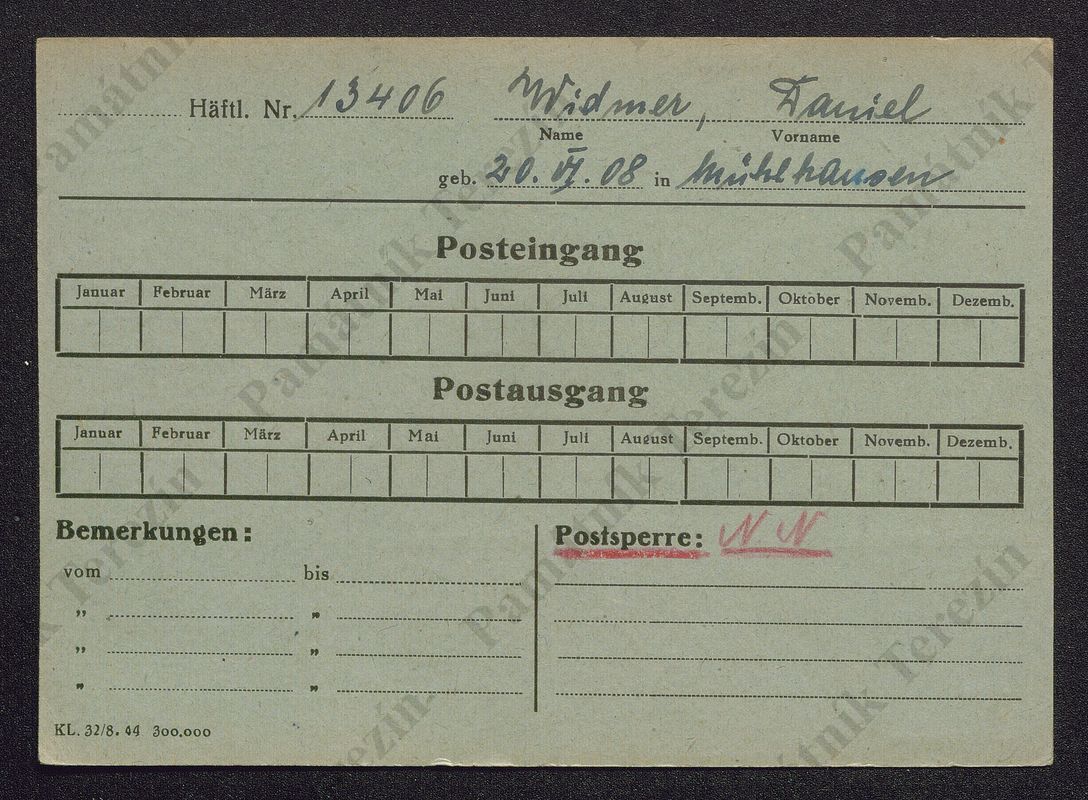 Häftl. Nr. 13406 Widmer, Daniel
Name Vorname
geb. 20. VI. 08 in Mühlhausen
Posteingang
Januar Februar März April Mai Juni Juli August Septemb. Oktober Novemb. Dezemb.
Postausgang
Januar Februar März April Mai Juni Juli August Septemb. Oktober Novemb. Dezemb.
Bemerkungen: Postsperre: N.N
vom bis
„ „
„ „
„ „
KL. 32/8. 44 300.000
Památník Terezín